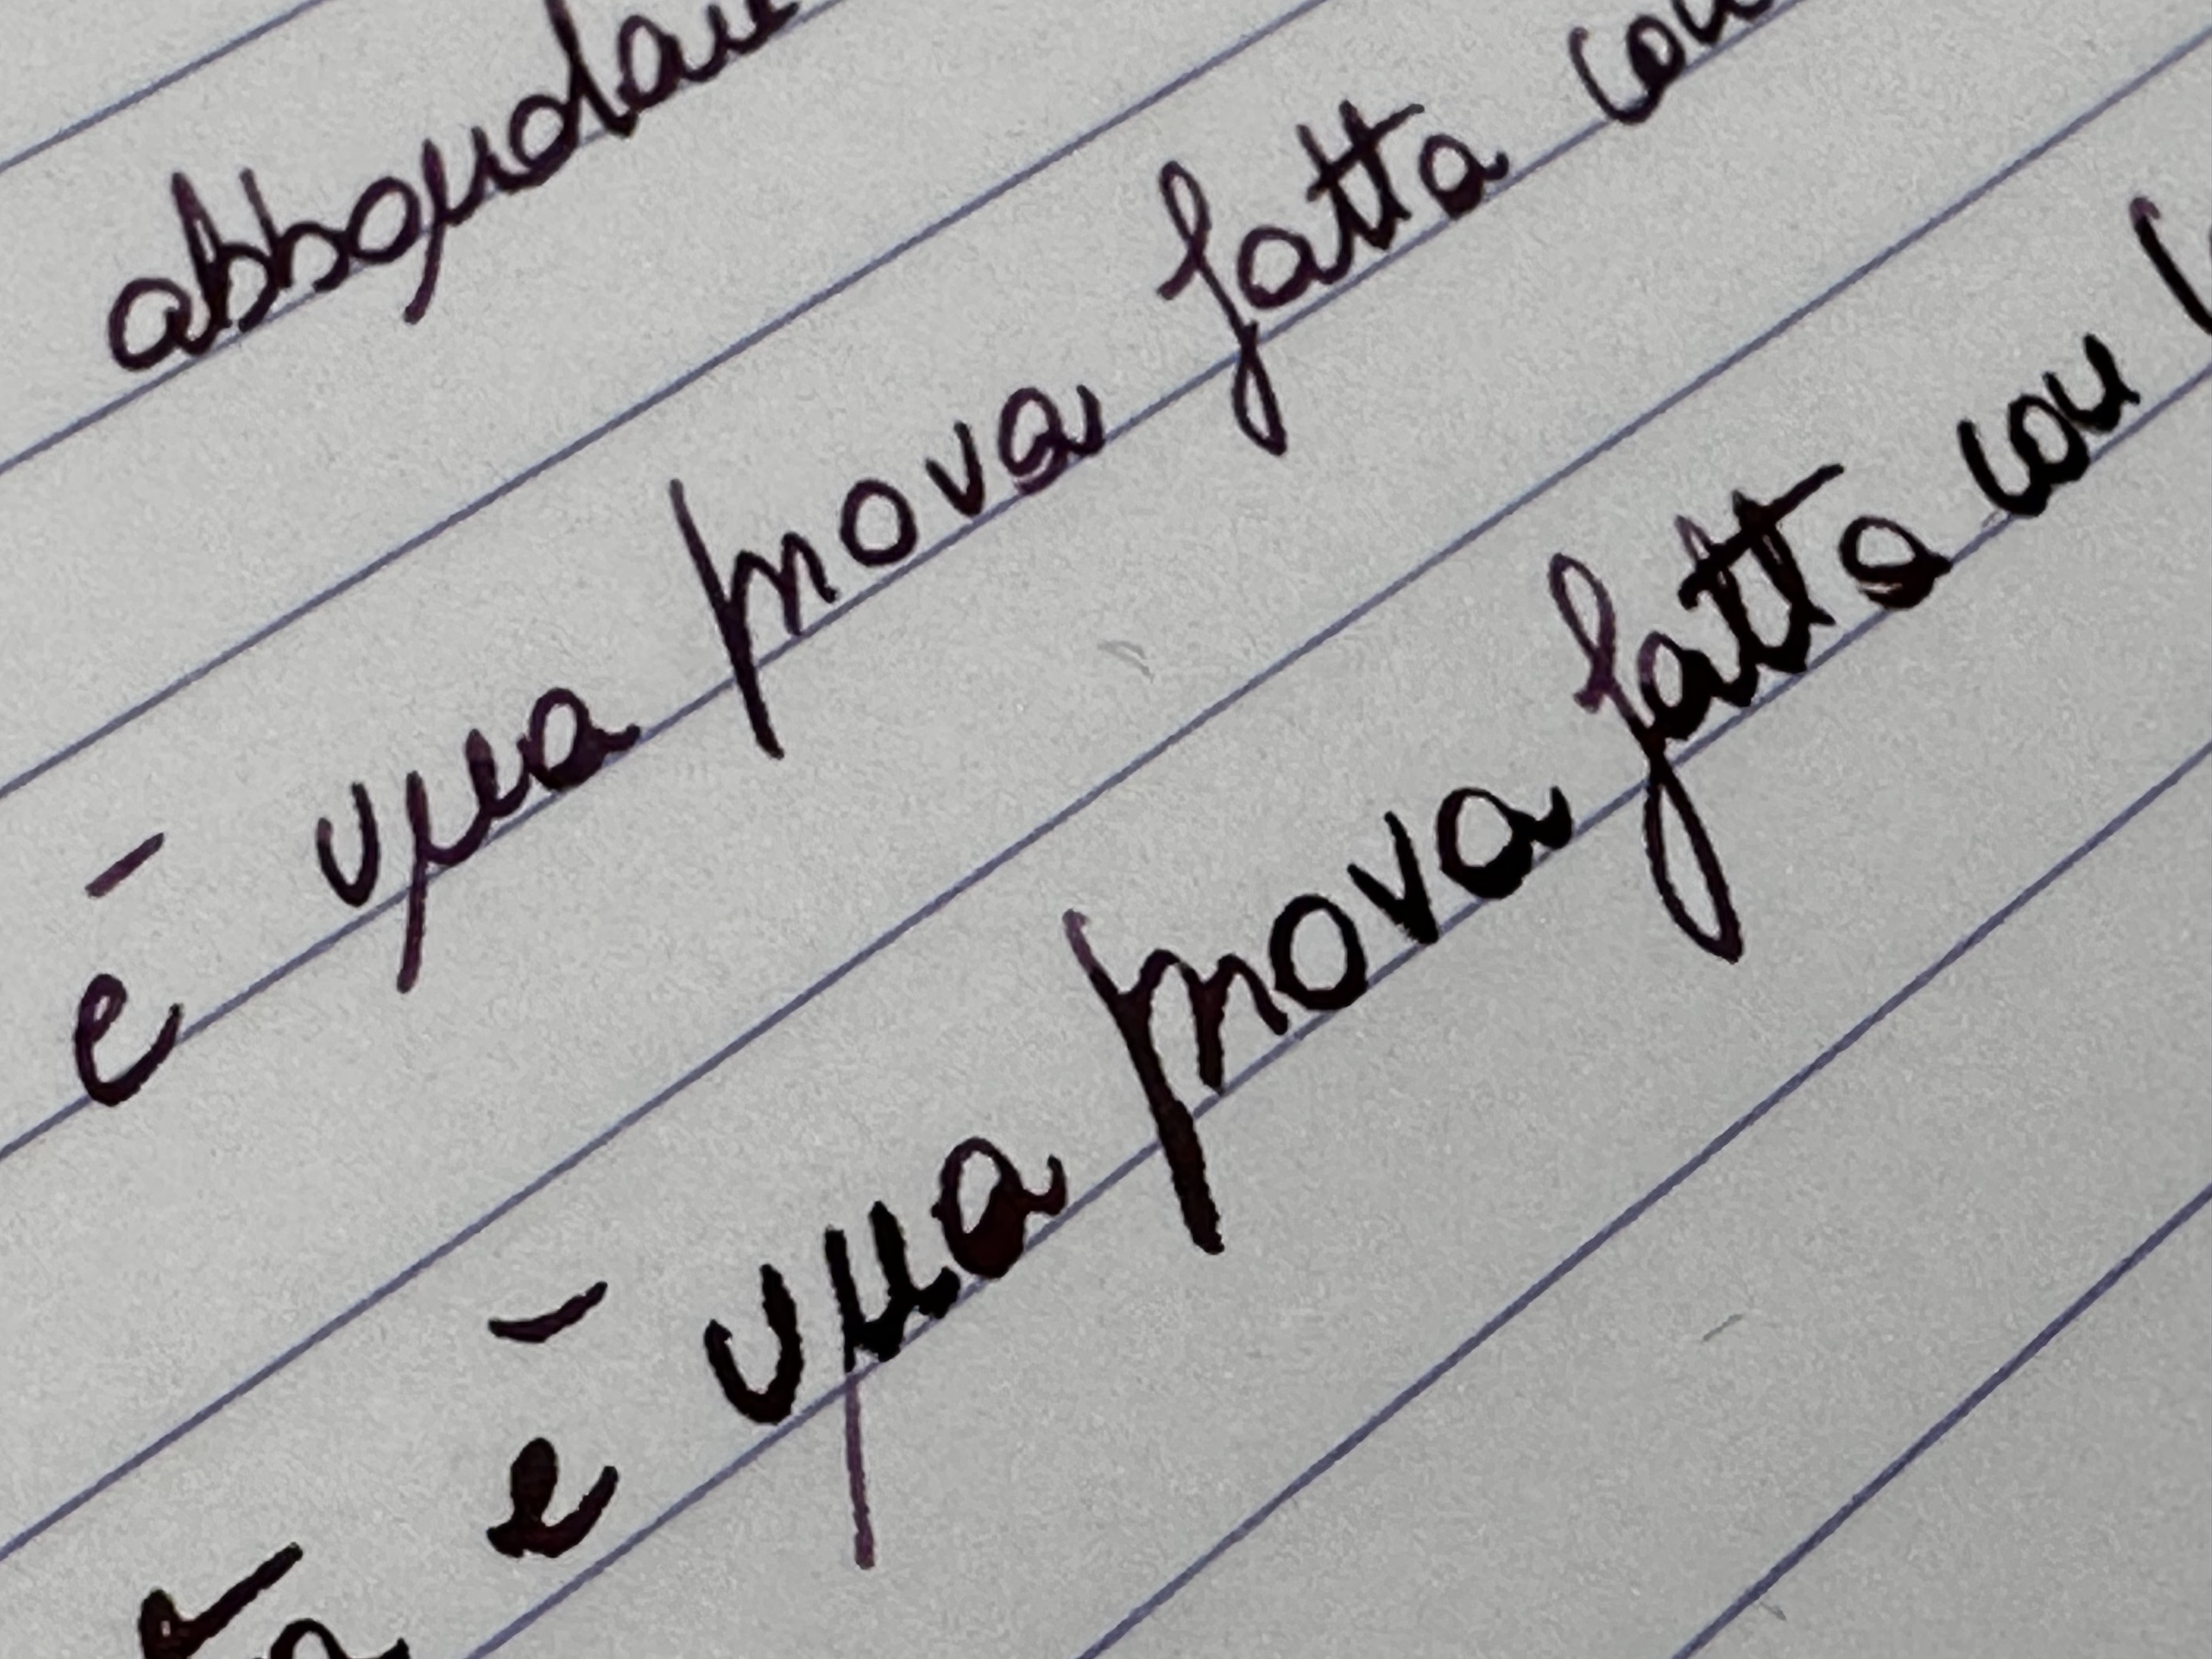 abbondan
è una prova fatta con
ta è una prova fatta con